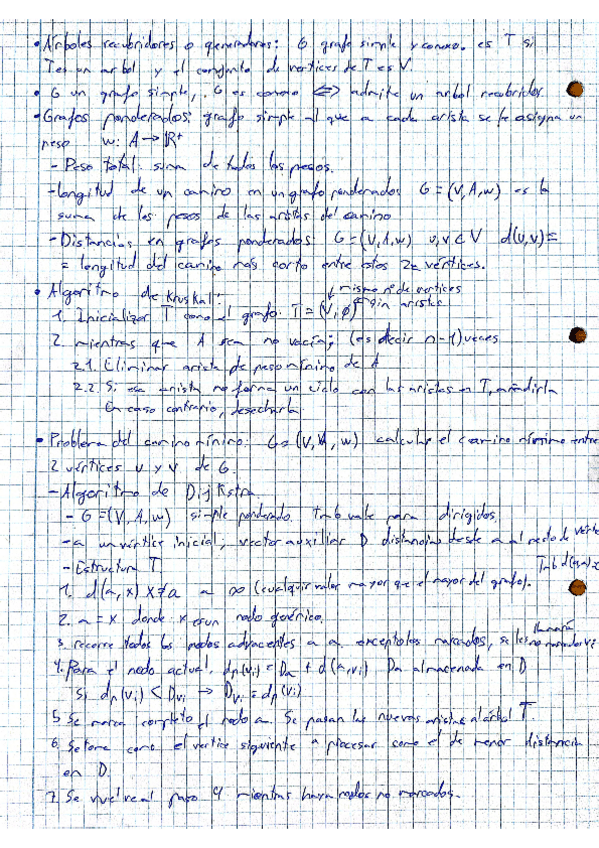 • Árboles recubridores o generadores: G grafo simple y conexo. es T si
T es un arbol y el conjunto de vertices de T es V.
• G un grafo simple, G es conexo <=> admite un arbol recubridor.
• Grafos ponderados: grafo simple al que a cada arista se le asigna un
peso w: A → R+
- Peso total: suma de todos los pesos.
- longitud de un camino en un grafo ponderado G = (V,A,w) es la
suma de los pesos de las aristas del camino
- Distancias en grafos ponderados G=(V,A,w) u,v ⊂ V d(u,v)=
= longitud del camino más corto entre estos 2 vértices.
• Algoritmo de Kruskal:
↓ mismo nº de vertices
1. Inicializar T como el grafo T = (V, ∅) sin aristas
2. mientras que A sea no vacía; (es decir n-1) veces
2.1. Eliminar arista de peso mínimo de A
2.2. Si esa arista no forma un ciclo con las aristas en T, añadirla
En caso contrario, desecharla
• Problema del camino mínimo: G=(V,A,w) calcular el camino mínimo entre
2 vértices u y v de G.
- Algoritmo de Dijkstra.
- G=(V,A,w) simple ponderado. tmb vale para dirigidos.
- a un vértice inicial, vector auxiliar D distancias desde a al resto de vérti
- Estructura T
Tmb d(a,a)=
1. d(a,x) x≠a a ∞ (cualquier valor mayor que el mayor del grafo).
2. a = x donde x es un nodo genérico.
3. recorre todos los nodos adyacentes a a, excepto los marcados, se les no marcados
4. Para el nodo actual, dp(vi) = Da + d(a,vi) Da almacenada en D
Si dp(vi) < Dvi → Dvi = dp(vi)
5. Se marca completo el nodo a. Se pasan las nuevas aristas al árbol T.
6. Se toma como el vertice siguiente a procesar como el de menor distancia
en D.
7. Se vuelve al paso 4 mientras haya nodos no marcados.